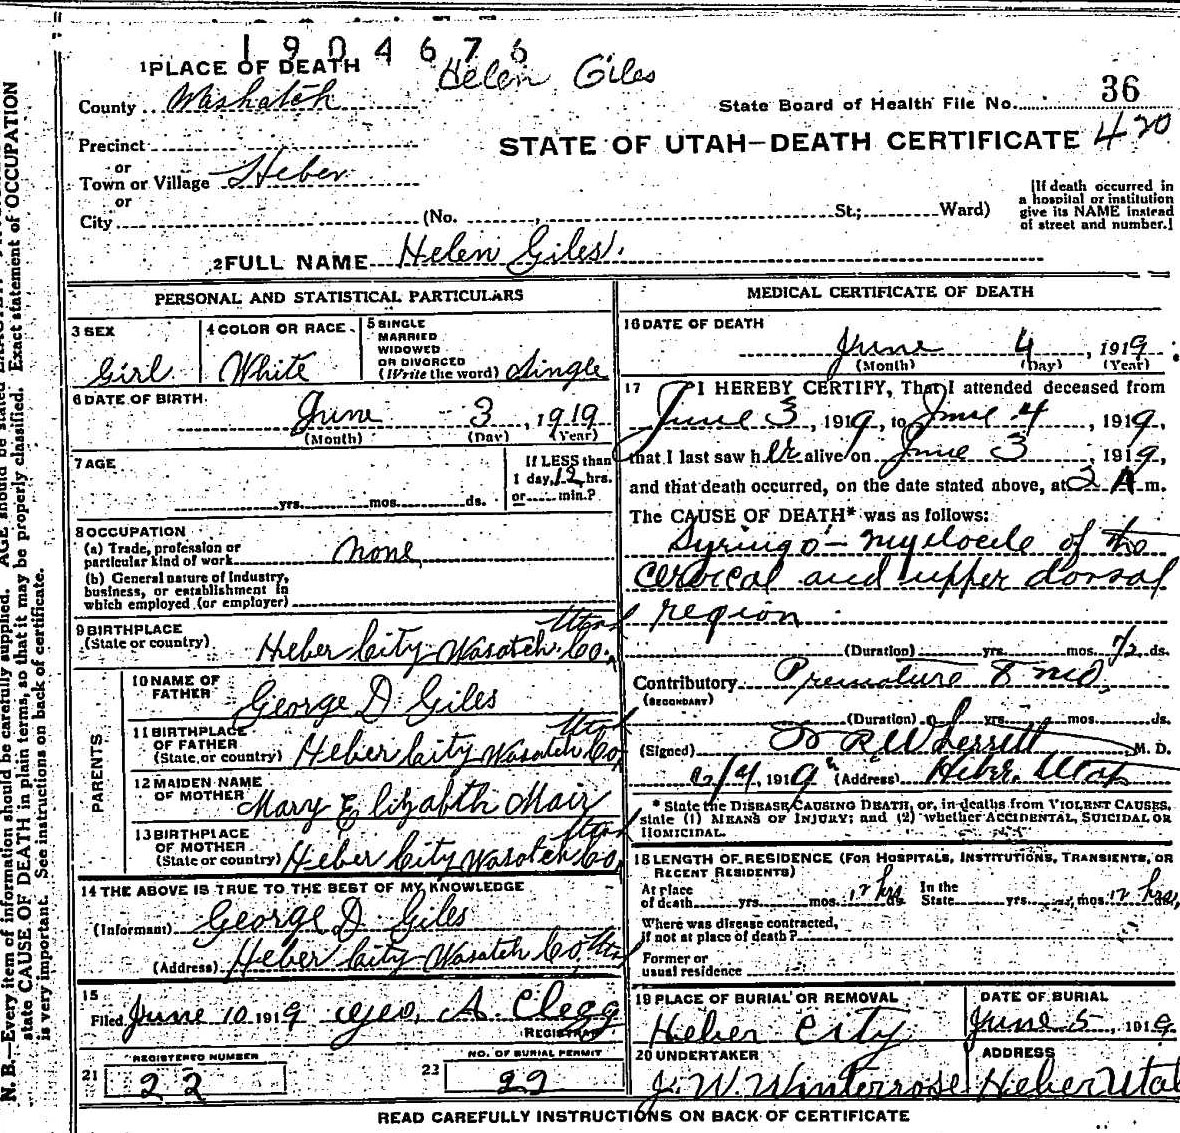 1904676
1 PLACE OF DEATH Helen Giles
County Washatch State Board of Health File No. 36
Precinct STATE OF UTAH—DEATH CERTIFICATE 420
or
Town or Village Heber
or
City (No. , St.; Ward)
[If death occurred in a hospital or institution give its NAME instead of street and number.]
2 FULL NAME Helen Giles.
PERSONAL AND STATISTICAL PARTICULARS
3 SEX Girl
4 COLOR OR RACE White
5 SINGLE MARRIED WIDOWED OR DIVORCED (Write the word) Single
6 DATE OF BIRTH June 3, 1919
(Month) (Day) (Year)
7 AGE yrs. mos. ds.
If LESS than 1 day, 12 hrs. or min.?
8 OCCUPATION
(a) Trade, profession or particular kind of work none
(b) General nature of Industry, business, or establishment in which employed (or employer)
9 BIRTHPLACE (State or country) Heber City Wasatch Co. Utah
PARENTS
10 NAME OF FATHER George D. Giles
11 BIRTHPLACE OF FATHER (State or country) Heber City Wasatch Co. Utah
12 MAIDEN NAME OF MOTHER Mary Elizabth Mair
13 BIRTHPLACE OF MOTHER (State or country) Heber City Wasatch Co. Utah
14 THE ABOVE IS TRUE TO THE BEST OF MY KNOWLEDGE
(Informant) George D. Giles
(Address) Heber City Wasatch Co. Utah
15 Filed June 10 1919 Geo. A. Clegg
REGISTRAR
REGISTERED NUMBER
21 22
NO. OF BURIAL PERMIT
23 22
MEDICAL CERTIFICATE OF DEATH
16 DATE OF DEATH
June 4, 1919
(Month) (Day) (Year)
17 I HEREBY CERTIFY, That I attended deceased from
June 3, 1919, to June 4, 1919,
that I last saw her alive on June 3, 1919,
and that death occurred, on the date stated above, at 2 A m.
The CAUSE OF DEATH* was as follows:
Syringo-myelocele of the
cervical and upper dorsal
region
(Duration) yrs. mos. 1/2 ds.
Contributory Premature 8 mo.
(SECONDARY)
(Duration) yrs. mos. ds.
(Signed) W R Wherritt M. D.
6/4, 1919 (Address) Heber, Utah
* State the DISEASE CAUSING DEATH, or, in deaths from VIOLENT CAUSES,
state (1) MEANS OF INJURY; and (2) whether ACCIDENTAL, SUICIDAL OR
HOMICIDAL.
18 LENGTH OF RESIDENCE (FOR HOSPITALS, INSTITUTIONS, TRANSIENTS, OR
RECENT RESIDENTS)
At place of death yrs. mos. 12 hrs ds. In the State yrs. mos. 12 hrs,
Where was disease contracted,
if not at place of death?
Former or
usual residence
19 PLACE OF BURIAL OR REMOVAL Heber City
DATE OF BURIAL June 5, 1919
20 UNDERTAKER J. W. Winterrose
ADDRESS Heber Utah
READ CAREFULLY INSTRUCTIONS ON BACK OF CERTIFICATE
N. B.—Every item of information should be carefully supplied. AGE should be stated
state CAUSE OF DEATH in plain terms, so that it may be properly classified. Exact statement of OCCUPATION
is very important. See instructions on back of certificate.